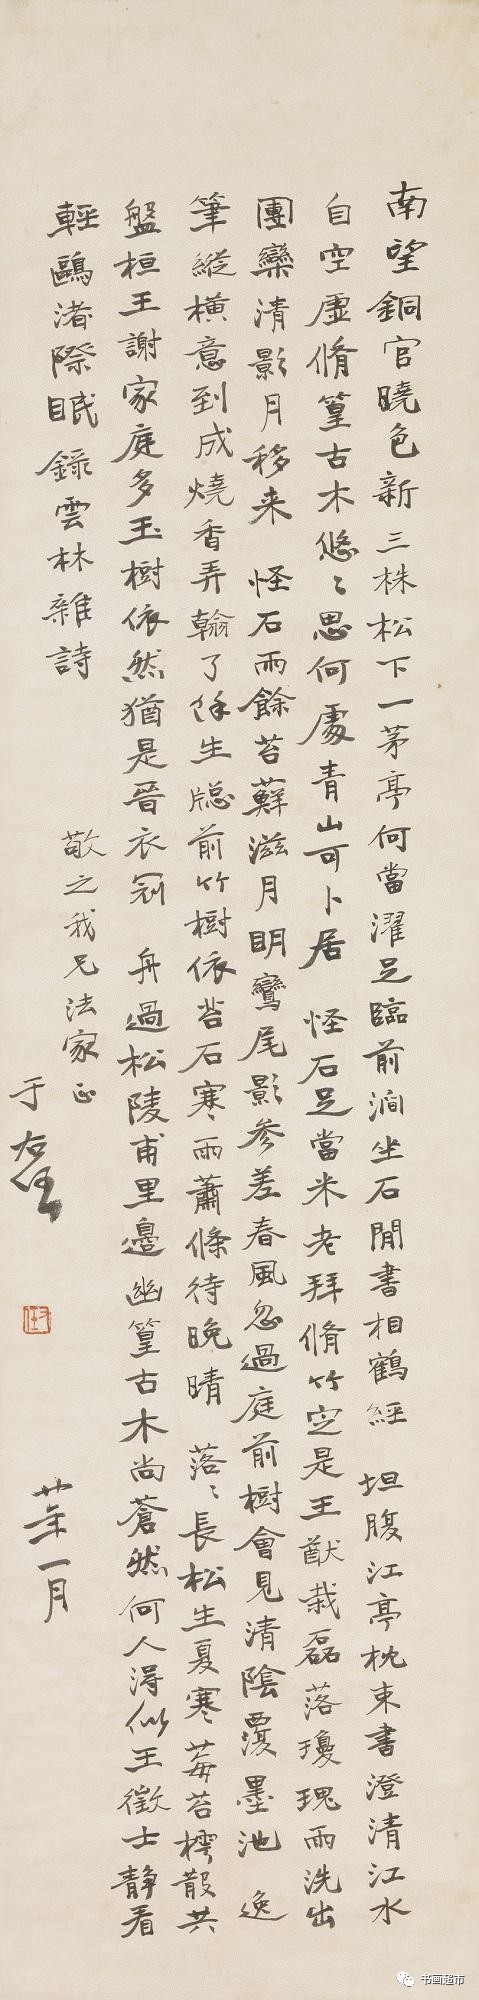 南望銅官曉色新三株松下一茅亭何當濯足臨前澗坐石閒書相鶴經 坦腹江亭枕束書澄清江水
自空虛脩篁古木悠〻思何處青山可卜居 怪石足當米老拜脩竹定是王猷栽磊落瓊瑰雨洗出
團欒清影月移来 怪石雨餘苔蘚滋月明鸞尾影参差春風忽過庭前樹會見清陰覆墨池 逸
筆縱橫意到成燒香弄翰了餘生窓前竹樹依苔石寒雨蕭條待晚晴 落〻長松生夏寒莓苔樗散共
盤桓王謝家庭多玉樹依然猶是晉衣冠 舟過松陵甫里邊幽篁古木尚蒼然何人得似王徵士静看
輕鷗渚際眠 錄雲林雜詩
敬之我兄法家正
于右任
廿年一月
书画超市